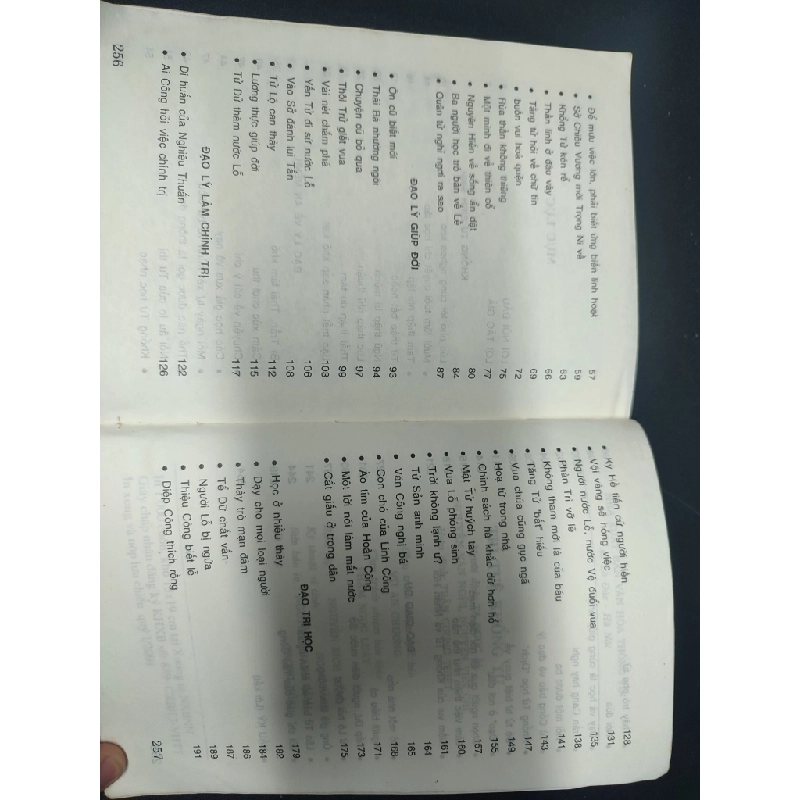 • Để mưu việc lớn, phải biết ứng biến linh hoạt 57
• Sở Chiêu Vương mời Trọng Ni về 59
• Khổng Tử kén rể 63
• Thần linh ở đâu vậy 66
• Tăng tử hỏi về chữ tín 69
• buồn vui hoà quện 72
• Rùa thần không thiêng 75
• Một mình đi về thiên cổ 77
• Nguyên Hiến về sống ẩn dật 80
• Ba người học trò bàn về Lễ 84
• Quân tử nghỉ ngơi ra sao 87
ĐẠO LÝ GIÚP ĐỜI
• Ơn cũ biệt mới 93
• Thái Bá nhường ngôi 94
• Chuyện cũ bỏ qua 97
• Thôi Trữ giết vua 99
• Vài nét chấm phá 103
• Yến Tử đi sứ nước Lỗ 106
• Vào Sở đánh lui Tần 108
• Tử Lộ can thầy 112
• Lương thực giúp đời 115
• Từ Dữ thêm nước Lỗ 117
ĐẠO LÝ LÀM CHÍNH TRỊ
• Di huấn của Nghiêu Thuấn 122
• Ai Công hỏi việc chính trị 126
256
• Kỳ Hề tiến cử người hiền 128
• Vội vàng sẽ hỏng việc 131
• Người nước Lỗ, nước Vệ đuổi vua 135
• Phàn Trì vỡ lẽ 138
• Không tham mới là của báu 141
• Tăng Tử "bất" hiếu 143
• Vua chúa cũng gục ngã 147
• Hoạ từ trong nhà 149
• Chính sách hà khắc dữ hơn hổ 155
• Mật Tử huých tay 157
• Vua Lỗ phóng sinh 160
• Trời không lạnh ư? 161
• Tử Sản anh minh 164
• Văn Công nghị bá 165
• Con chó của Linh Công 168
• Áo tím của Hoàn Công 171
• Một lời nói làm mất nước 173
• Cất giấu ở trong dân 175
ĐẠO TRỊ HỌC
• Học ở nhiều thầy 179
• Dạy cho mọi loại người 182
• Thầy trò mạn đàm 181
• Tể Dư chất vấn 186
• Người Lỗ bị ngựa 187
• Thiệu Công biết lễ 189
• Diệp Công thích rồng 191
257